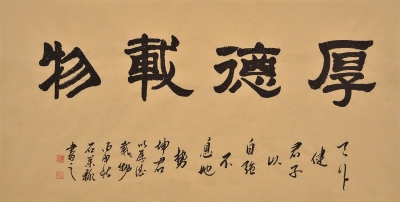 厚德載物
天行
健
君子
以
自强
不
息地
勢
坤君
以厚德
載物
書之